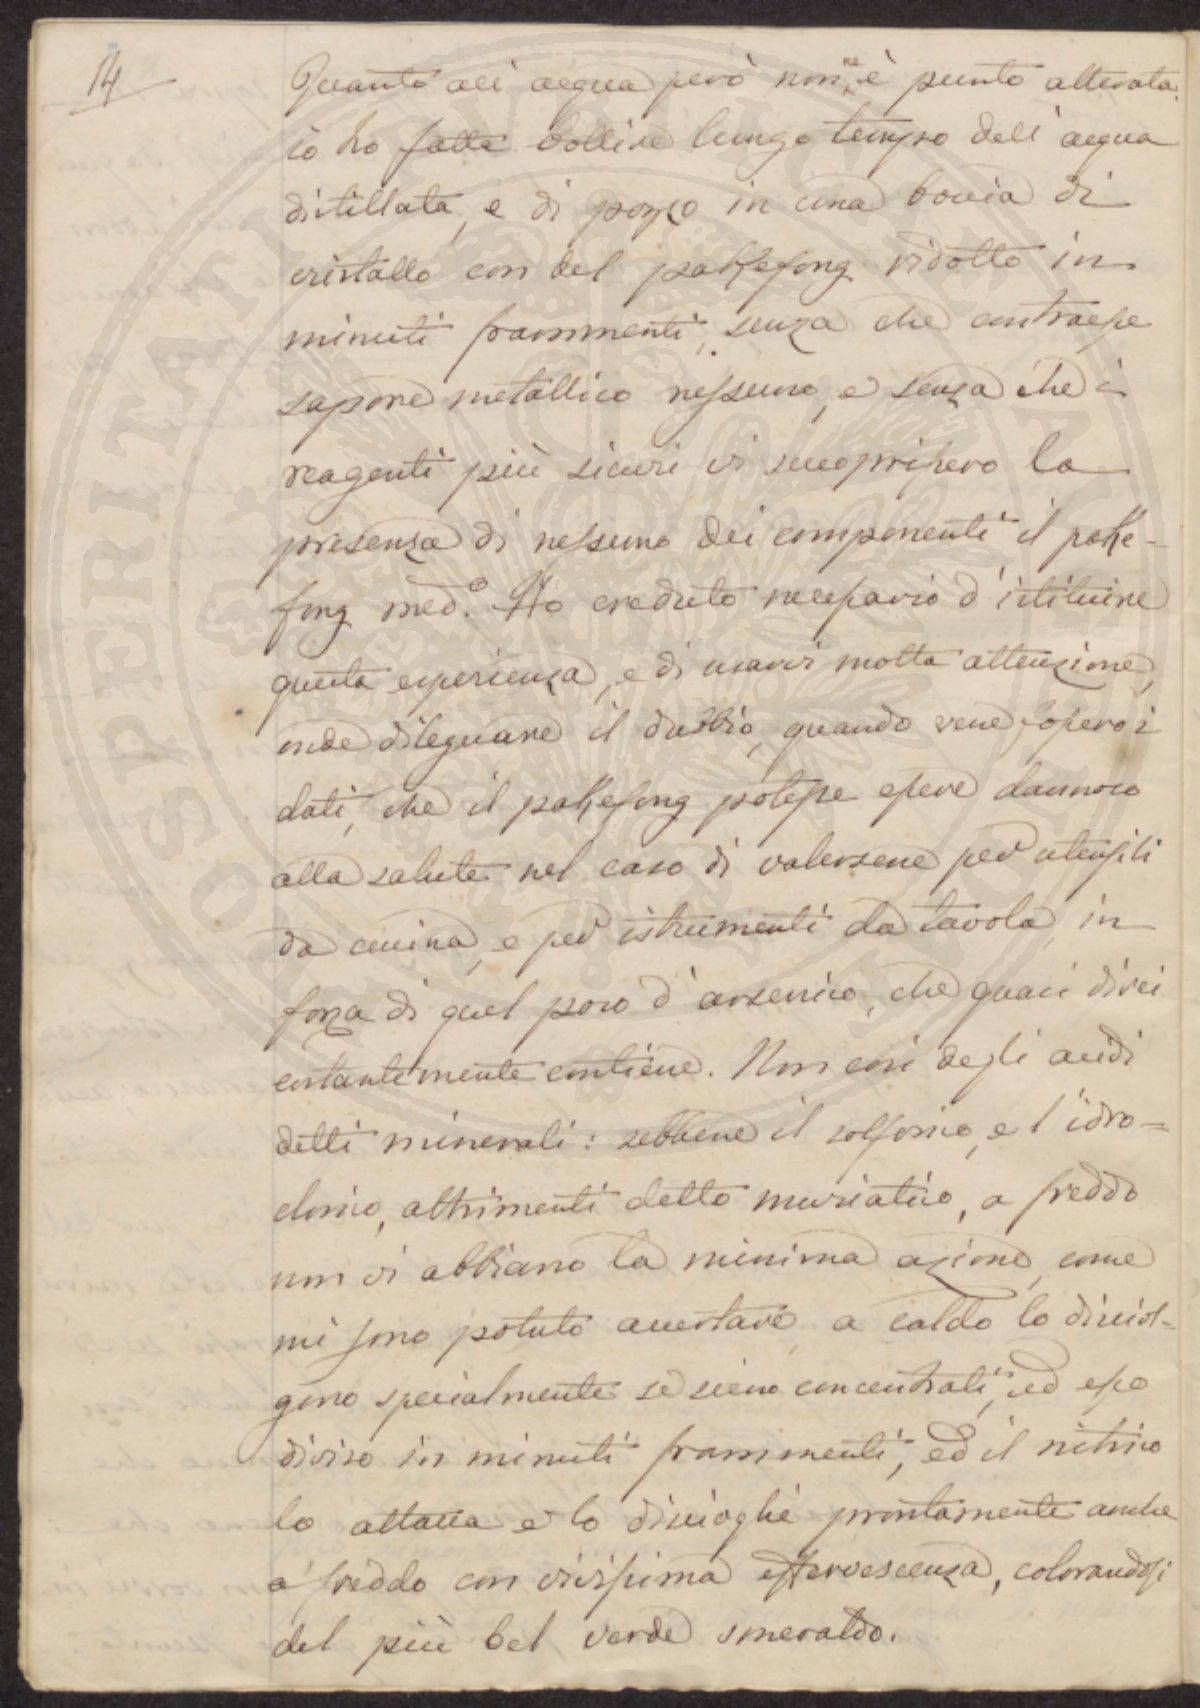 14
Quanto all' acqua però non ne è punto alterata:
io ho fatto bollire lungo tempo dell' acqua
distillata, e di pozzo in una boccia di
cristallo con del pakfong ridotto in
minuti frammenti, senza che contraesse
sapore metallico nessuno, e senza che i
reagenti più sicuri vi scuoprissero la
presenza di nessuno dei componenti il pak-
fong med.o Ho creduto necessario d' istituire
questa esperienza, e di usarvi molta attenzione,
onde dileguare il dubbio, quando vene fossero i
dati, che il pakfong potesse essere dannoso
alla salute nel caso di valersene per utensili
da cucina, e per istrumenti da tavola, in
forza di quel poco d' arsenico, che quasi direi
costantemente contiene. Non così degli acidi
detti minerali: sebbene il solforico, e l' idro=
clorico, altrimenti detto muriatico, a freddo
non vi abbiano la minima azione, come
mi sono potuto accertare, a caldo lo disciol=
gono specialmente se sieno concentrati, ed esso
diviso in minuti frammenti, ed il nitrico
lo attacca e lo discioglie prontamente anche
a freddo con vivissima effervescenza, colorandosi
del più bel verde smeraldo.
PROSPERITATI PUBLICAE